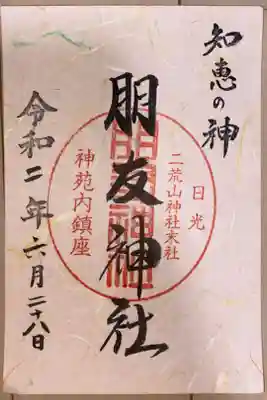 知恵の神
日光
二荒山神社末社
朋友神社
神苑内鎮座
令和二年六月二十八日